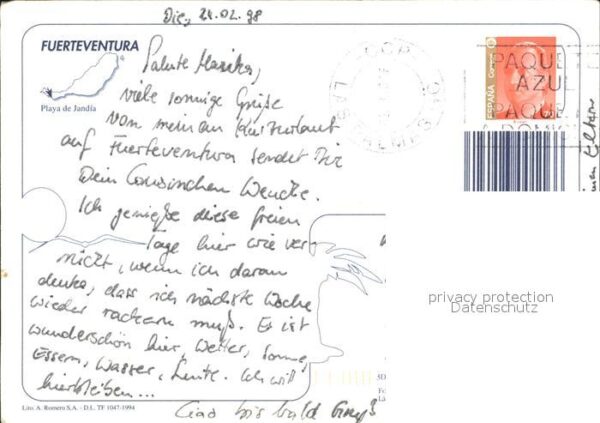 Die, 24.02.98
FUERTEVENTURA
Playa de Jandía
Salute Marika,
viele sonnige Grüße
von meinem Kurzurlaub
auf Fuerteventura sendet Dir
Dein Cousinchen Wencke.
Ich genieße diese freien
Tage hier wie ver-
rückt, wenn ich daran
denke, dass ich nächste Woche
wieder rackern muß. Es ist
wunderschön hier, Wetter, Sonne,
Essen, Wasser, Leute. Ich will
hierbleiben...
Ciao bis bald
ESPAÑA Correos
PAQUE
AZUL
PAQUE
Eltern
privacy protection
Datenschutz
Lito. A. Romero S.A. - D.L. TF 1047-1994